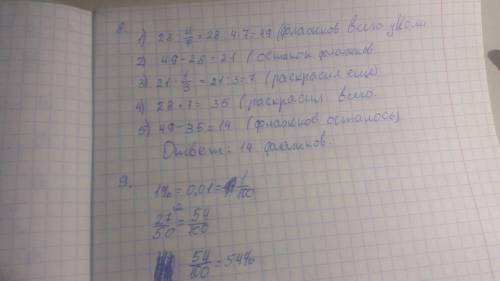 8. 1) 28 : 4/7 = 28 : 4 · 7 = 49 (флажков всего у Коли
2) 49 - 28 = 21 (остаток флажков.
3) 21 · 1/3 = 21 : 3 = 7 (раскрасил еще)
4) 28 + 7 = 35 (раскрасил всего.
5) 49 - 35 = 14 (флажков осталось)
Ответ: 14 флажков.
9. 1% = 0,01 = 1/100
27/50 = 54/100
54/100 = 54%